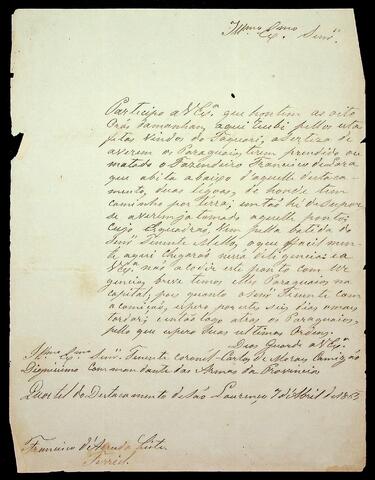 Illmo Exmo Senr.
Participo a VExa. que hontim as oito
Oras damanhan, aqui recibi pellos esta
fetas vindos do Taquari, a sertiza de
averem os Paraguaios, terem prendido ou
matado o Fazendeiro Francisco de Lara
que abita abaixo d'aquelle destaca-
mento, duas legoas, de honde tem
caminho por Terra; entaõ hé de supor
se averem ja tomado aquelle ponto;
cujo Aquaráes, vem pella batida do
Senr. Tenente Mello, aque facil men-
te aqui chegaraõ nessa deligencia e a
VExa. naõ acodir este ponto com ur
gencia, breve temos elles Paraguaios na
capital, por quanto o Senr Tenente com
a comicaõ, espero por estes dias o mais
tardar, e entaõ logo atras os Paraguaios,
pello que espero Suas ultimas Ordens.
Deos Guarde a VExa.
Illmo Exmo Senr. Tenente coronel Carlos de Moraes Camizaõ
Dignissimo Commandante das Armas da Provincia
Quartel do Destacamento de Saõ Lourenço 7 de Abril de 1865
Francisco d'Arruda Leite